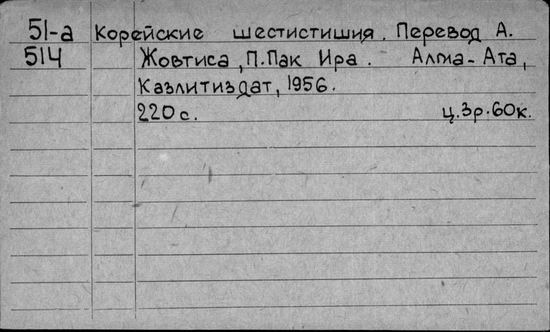 51-а Корейские шестистишия. Перевод А.
514 Жовтиса, П. Пак Ира. Алма-Ата,
Казлитиздат, 1956.
220 с. ц. 3р. 60к.